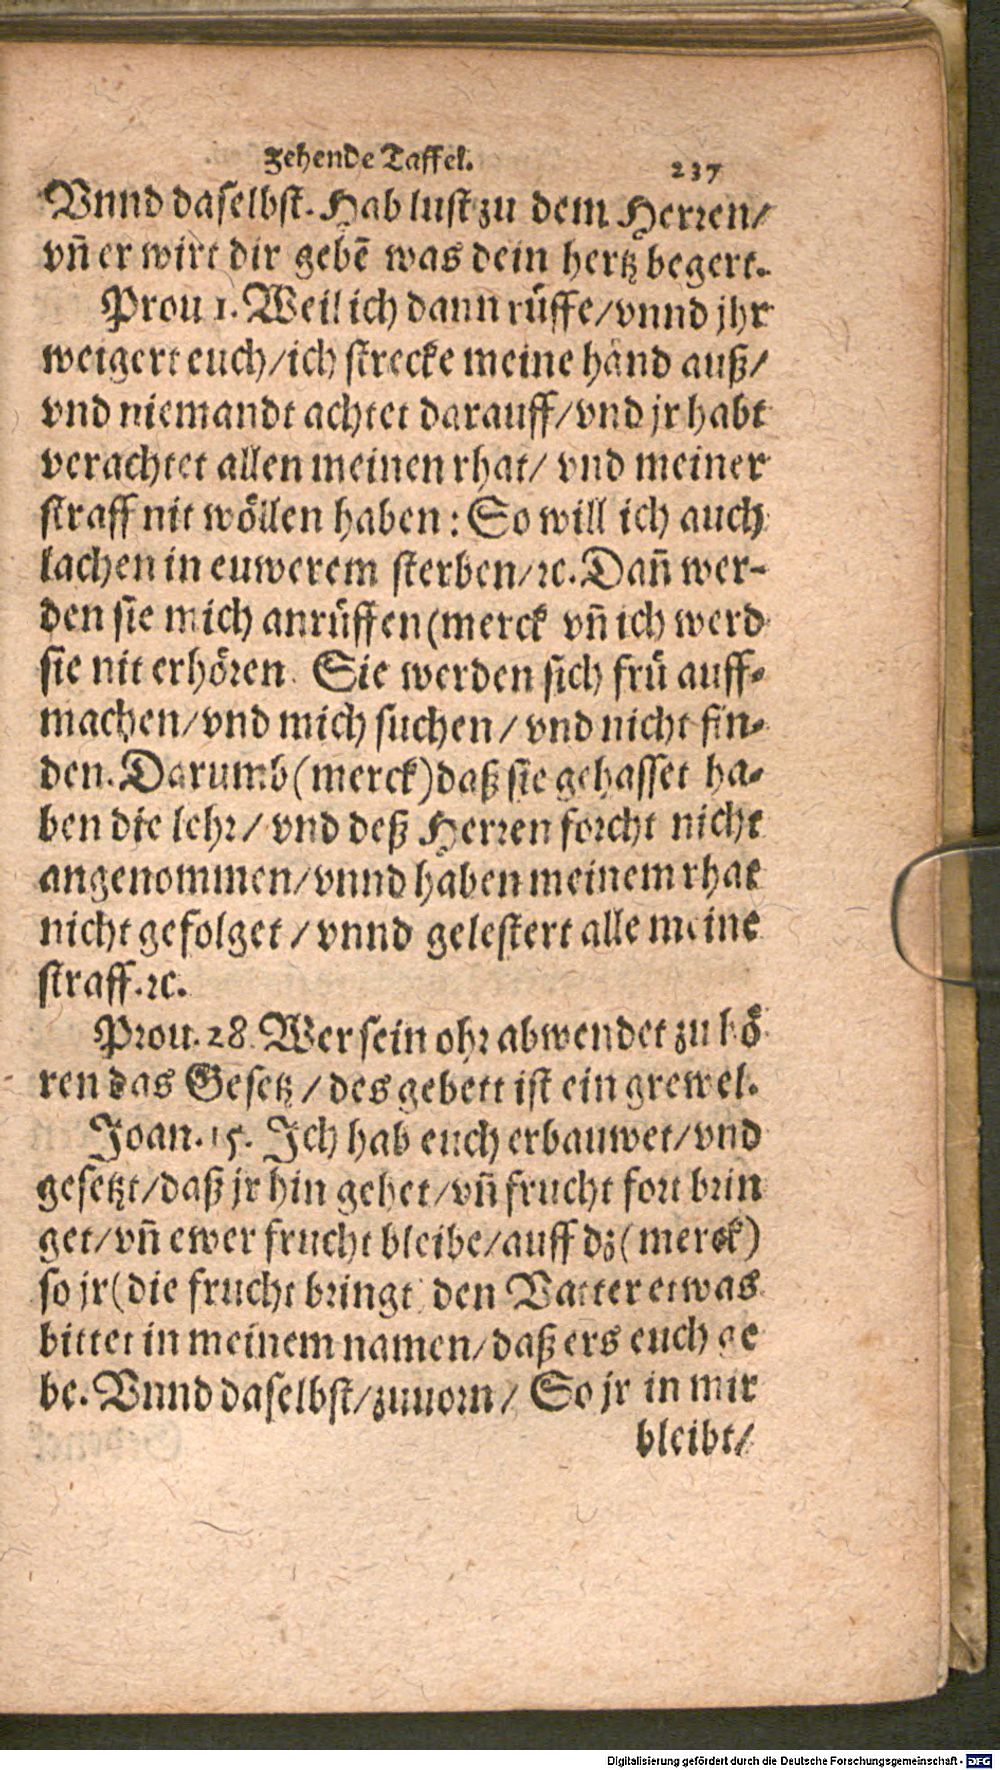 Zehende Taffel. 237
Vnnd daselbst. Hab lust zu dem Herren/
vn̄ er wirt dir gebē was dein hertz begert.
Prou 1. Weil ich dann rüffe/vnnd jhr
weigert euch/ich strecke meine händ auß/
vnd niemandt achtet darauff/vnd jr habt
verachtet allen meinen rhat/ vnd meiner
straff nit wöllen haben: So will ich auch
lachen in euwerem sterben/ꝛc. Dan̄ wer-
den sie mich anrüffen(merck vn̄ ich werd
sie nit erhören. Sie werden sich frü auff-
machen/vnd mich suchen/ vnd nicht fin-
den. Darumb(merck)daß sie gehasset ha-
ben die lehr/ vnd deß Herren forcht nicht
angenommen/vnnd haben meinem rhat
nicht gefolget/ vnnd gelestert alle meine
straff.ꝛc.
Prou. 28. Wer sein ohr abwendet zu hö
ren das Gesetz/ des gebett ist ein grewel.
Joan. 15. Ich hab euch erbauwet/vnd
gesetzt/daß jr hin gehet/vn̄ frucht fort brin
get/vn̄ ewer frucht bleibe/auff dz(merck)
so jr(die frucht bringt) den Vatter etwas
bittet in meinem namen/daß ers euch ge
be. Vnnd daselbst/zuuorn/ So jr in mir
bleibt/
Digitalisierung gefördert durch die Deutsche Forschungsgemeinschaft - DFG